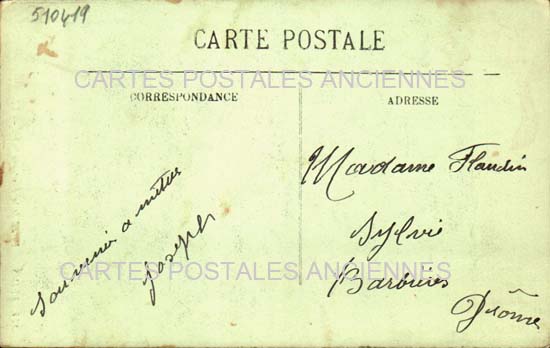 510419
CARTE POSTALE
CARTES POSTALES ANCIENNES
CORRESPONDANCE
ADRESSE
Souvenir a
Joseph
Madame Flandin
Sylvie
Barbières
Drôme
CARTES POSTALES ANCIENNES